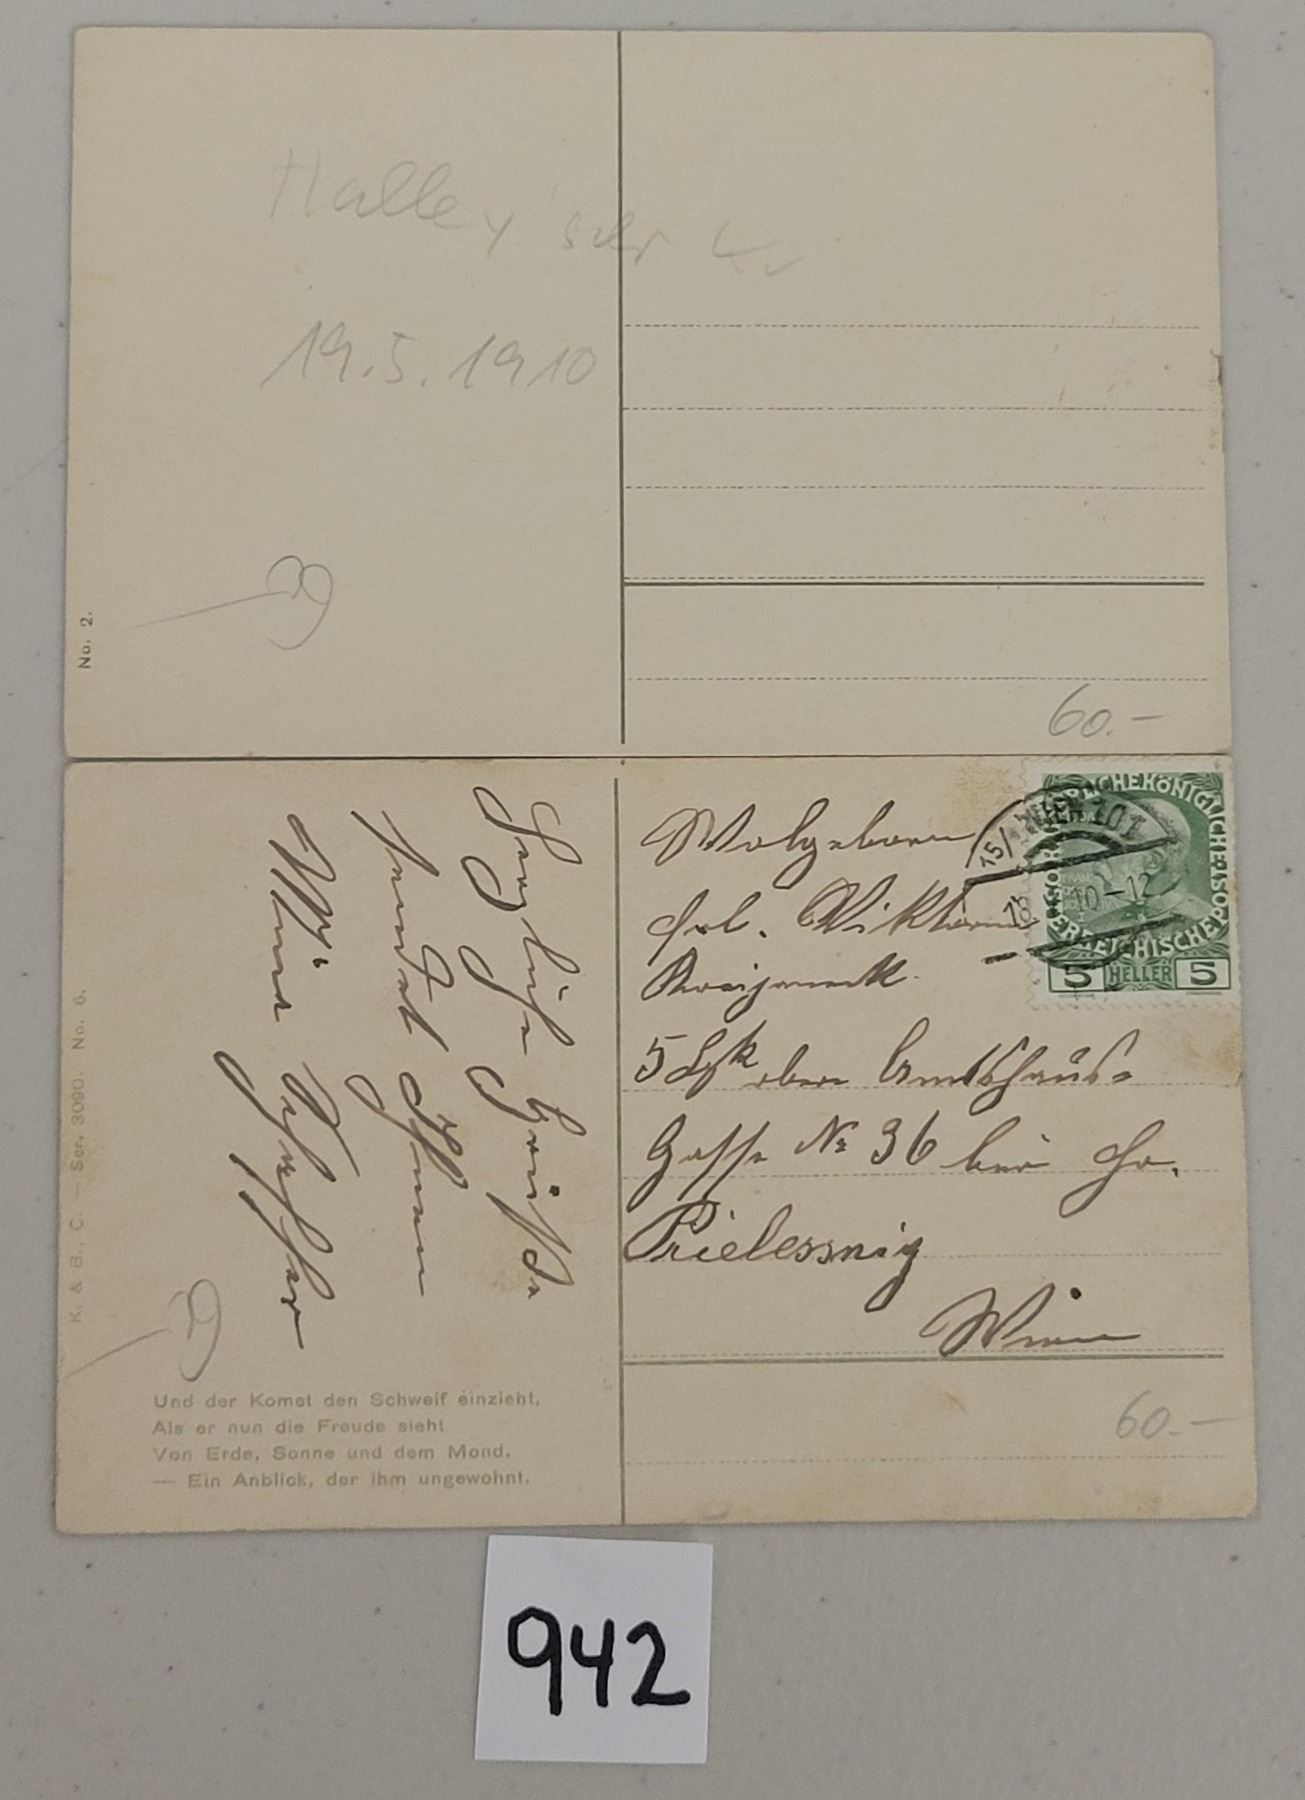 Halley'scher K
19.5.1910
No. 2.
60.-
Herzliche Grüße
sendet Ihnen
Mina
K. & B., C. — Ser. 3090. No. 6.
Und der Komet den Schweif einzieht,
Als er nun die Freude sieht
Von Erde, Sonne und dem Mond.
— Ein Anblick, der ihm ungewohnt.
KAISERLICHE KÖNIGLICHE
ÖSTERREICHISCHE POST
5 HELLER 5
15/1 WIEN 101
10-12
Wolgeboren
Frl. Viktoria
5 Bzk obere Amtshaus-
Gasse № 36 bei Fr.
Prielessnig
Wien
60.-
942